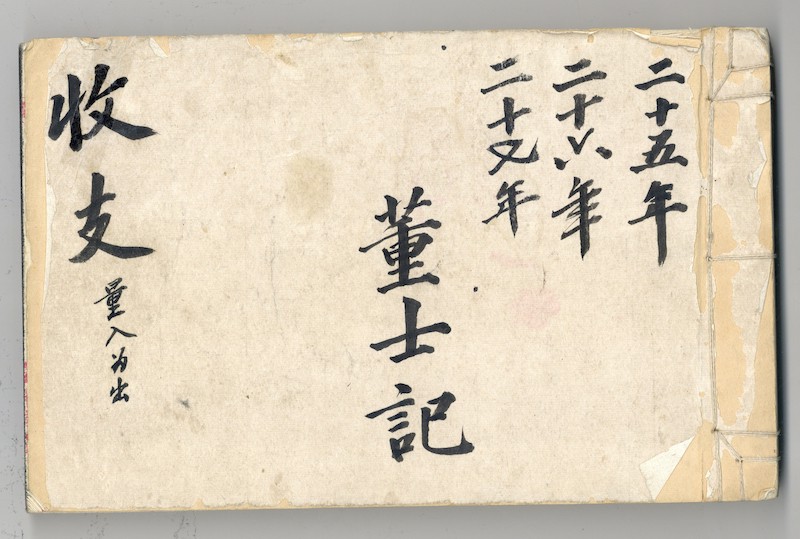 二十五年
二十六年
二十七年
董士記
收支
量入为出